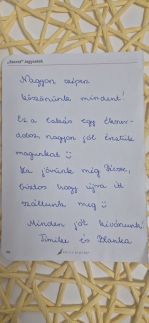 Nagyon szépen
köszönünk mindent!
Ez a lakás egy
nagyon jól éreztük
magunkat
Ha jövünk még
biztos hogy újra itt
szállunk meg
Minden jót kívánunk!
Timike és Blanka